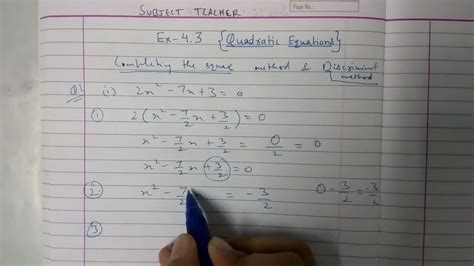 SUBJECT TEACHER
Page No.:
Ex-4.3 {Quadratic Equations}
Completing the square method & Discriminant method
Q1 (i) 2x² - 7x + 3 = 0
① 2(x² - 7/2 x + 3/2) = 0
x² - 7/2 x + 3/2 = 0/2 = 0
x² - 7/2 x + 3/2 = 0
② x² - 7/2 = - 3/2 0 - 3/2 = -3/2
③